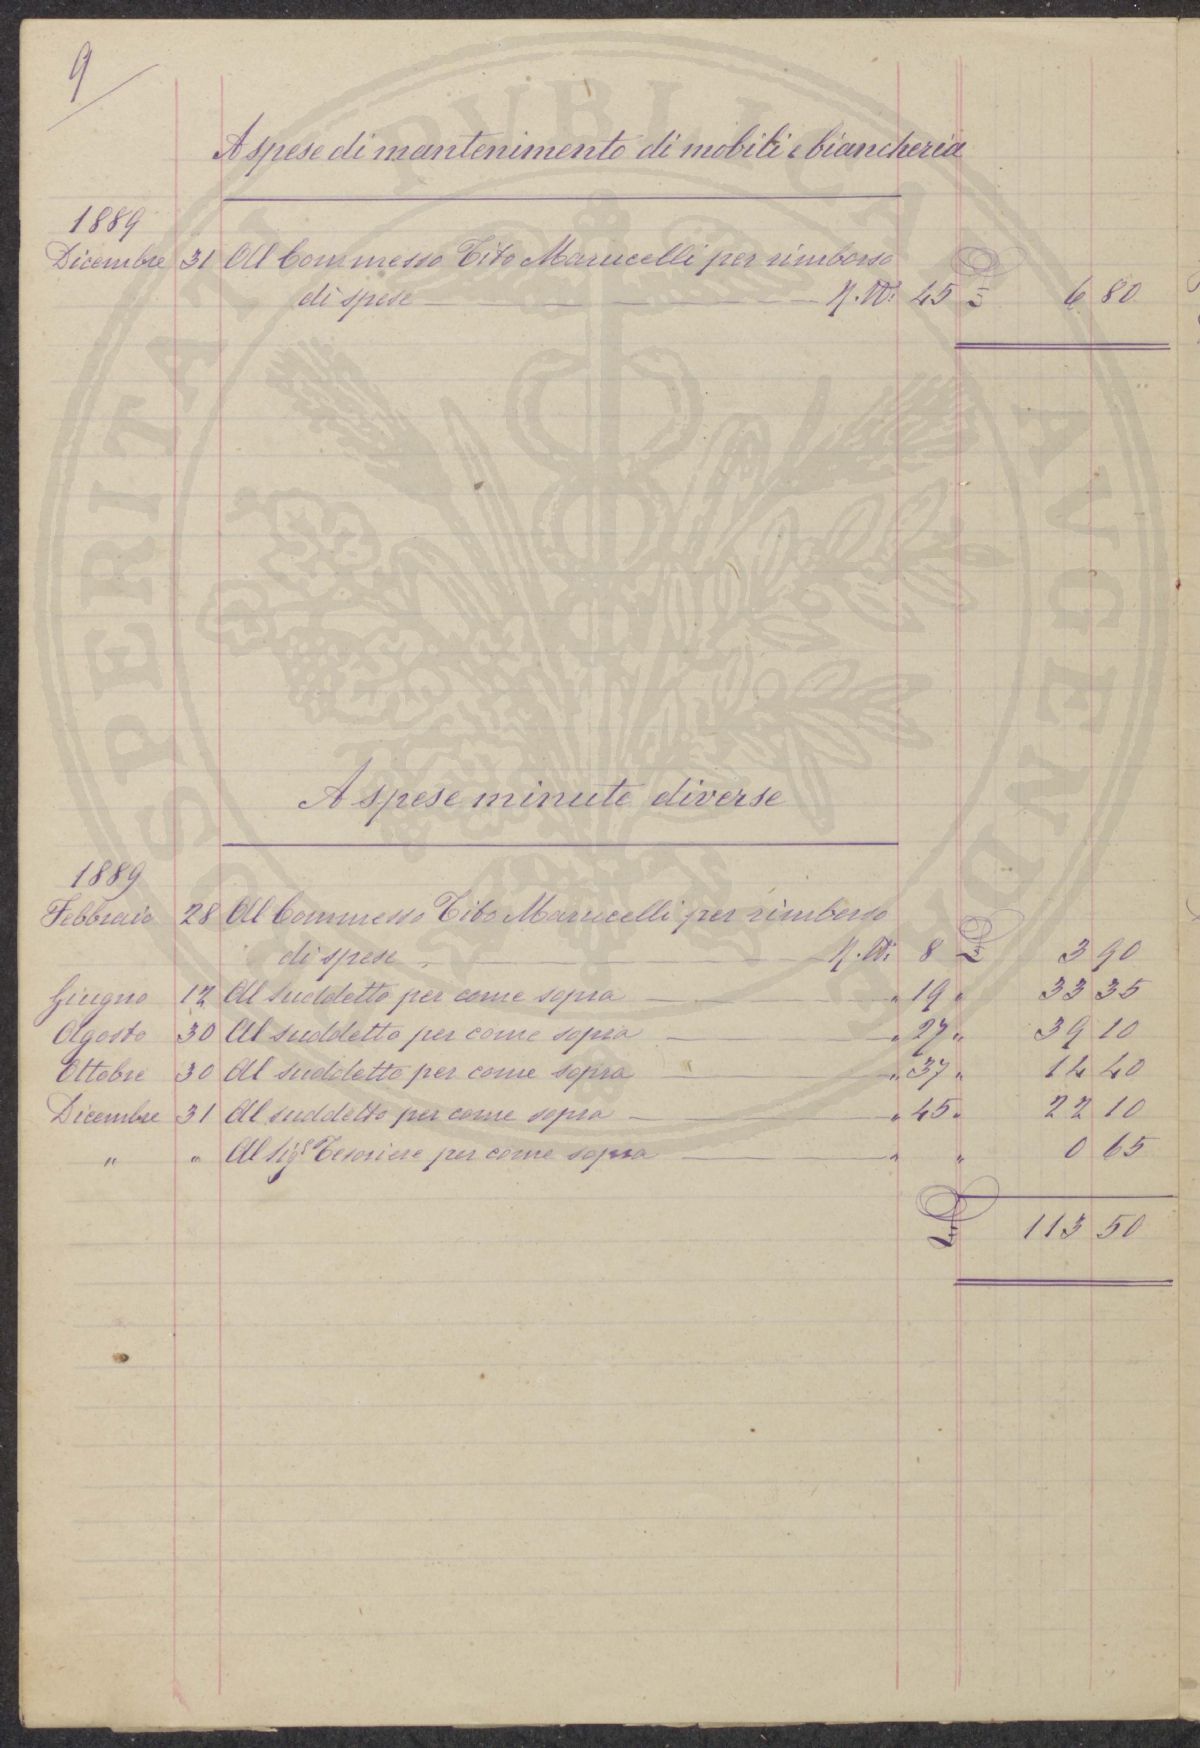 9
A spese di mantenimento di mobili e biancheria
1889
Dicembre 31 Al Commesso Tito Marucelli per rimborso
di spese N. M. 45 £ 6 80
A spese minute diverse
1889
Febbraio 28 Al Commesso Tito Marucelli per rimborso
di spese N. M. 8 £ 3 90
Giugno 12 Al suddetto per come sopra " 19 " 33 35
Agosto 30 Al suddetto per come sopra " 27 " 39 10
Ottobre 30 Al suddetto per come sopra " 37 " 14 40
Dicembre 31 Al suddetto per come sopra " 45 " 22 10
" " Al Sigr Tesoriere per come sopra " " 0 65
£ 113 50